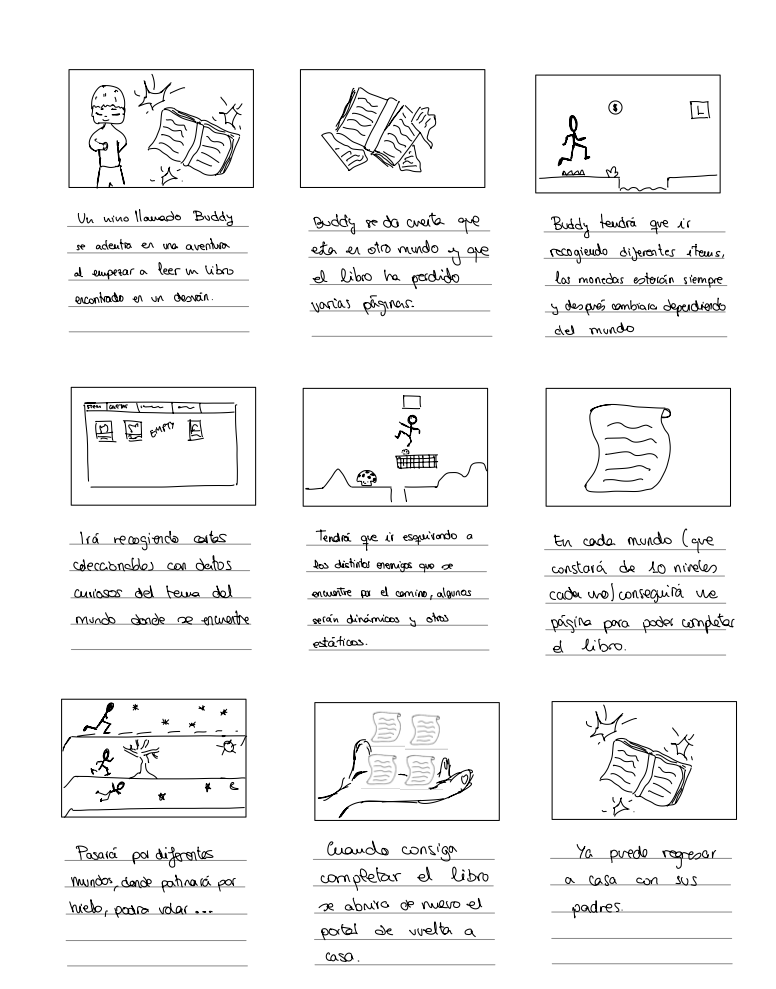 Un nino llamado Buddy
se adentra en una aventura
al empezar a leer un libro
encontrado en un desván.
Buddy se da cuenta que
esta en otro mundo y que
el libro ha perdido
varias páginas.
$
L
Buddy tendrá que ir
recogiendo diferentes items,
las monedas estarán siempre
y después cambiara dependiendo
del mundo
EMPTY
Irá recogiendo cartas
coleccionables con datos
curiosos del tema del
mundo donde se encuentre
Tendrá que ir esquivando a
los distintos enemigos que se
encuentre por el camino, algunos
serán dinámicos y otros
estáticos.
En cada mundo (que
constará de 10 niveles
cada uno) conseguirá una
página para poder completar
el libro.
Pasará por diferentes
mundos, donde patinará por
hielo, podra volar ...
Cuando consiga
completar el libro
se abrira de nuevo el
portal de vuelta a
casa.
Ya puede regresar
a casa con sus
padres.